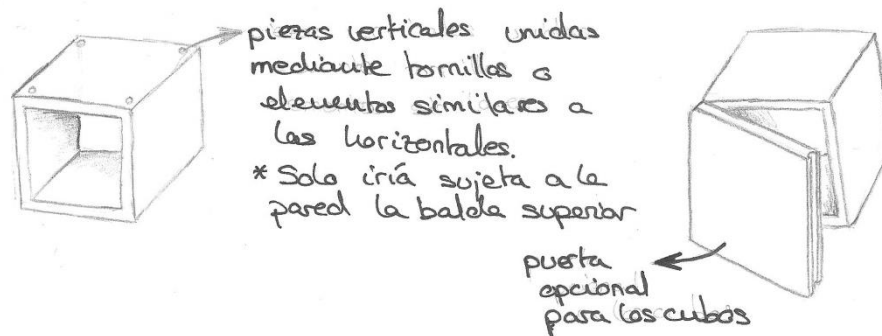 piezas verticales unidas
mediante tornillos o
elementos similares a
las horizontales.
* Solo iría sujeta a la
pared la balda superior
puerta
opcional
para los cubos